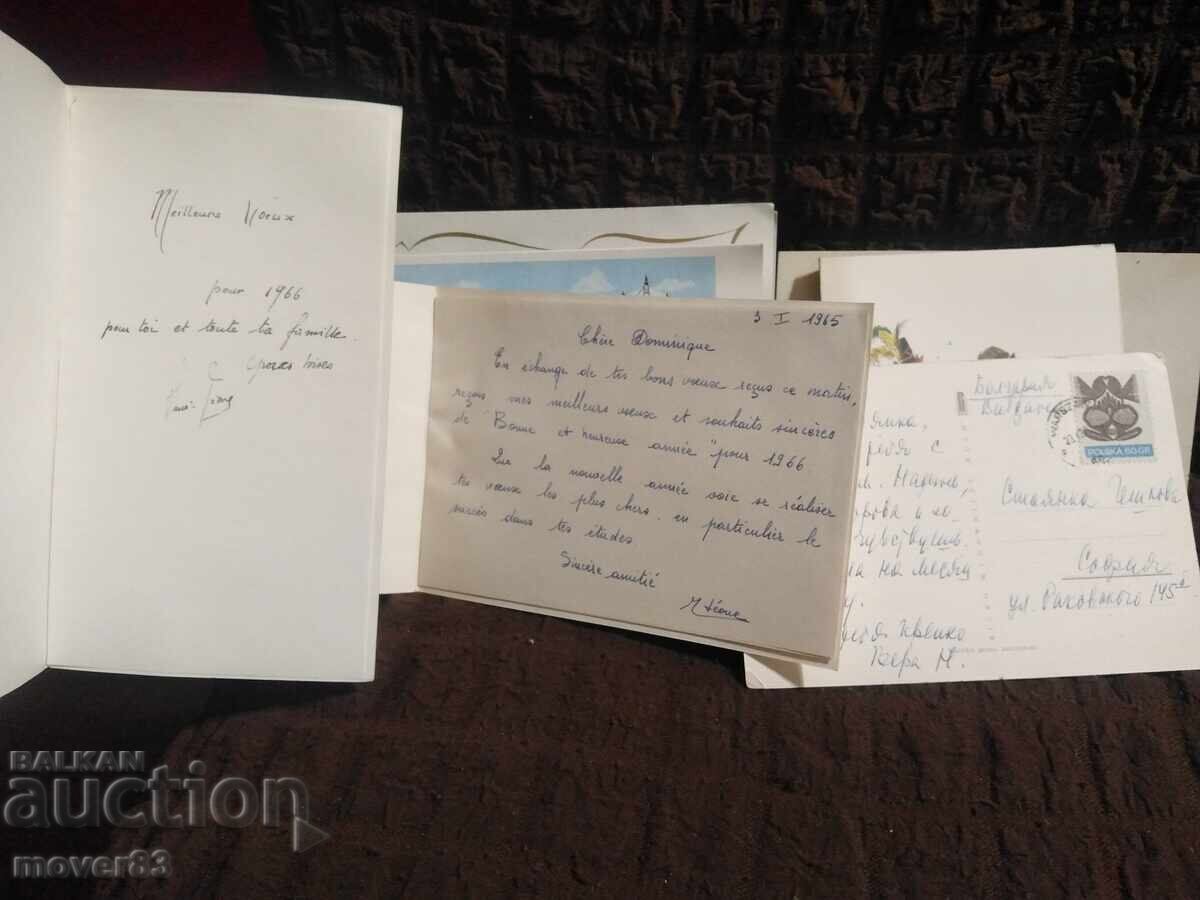 Meilleurs Voeux
pour 1966
pour toi et toute ta famille.
3 I 1965
Chère Dominique
En échange de tes bons vœux reçus ce matin,
reçois mes meilleurs vœux et souhaits sincères
de "Bonne et heureuse année" pour 1966.
Que la nouvelle année voie se réaliser
tes vœux les plus chers, en particulier le
succès dans tes études.
Sincère amitié
M Léone
България
Bulgaria
POLSKA 60 GR
Стоянка Чешкова
София
ул. Раковского 145
на месяц
крепко
Вера М.
BALKAN
auction
mover83